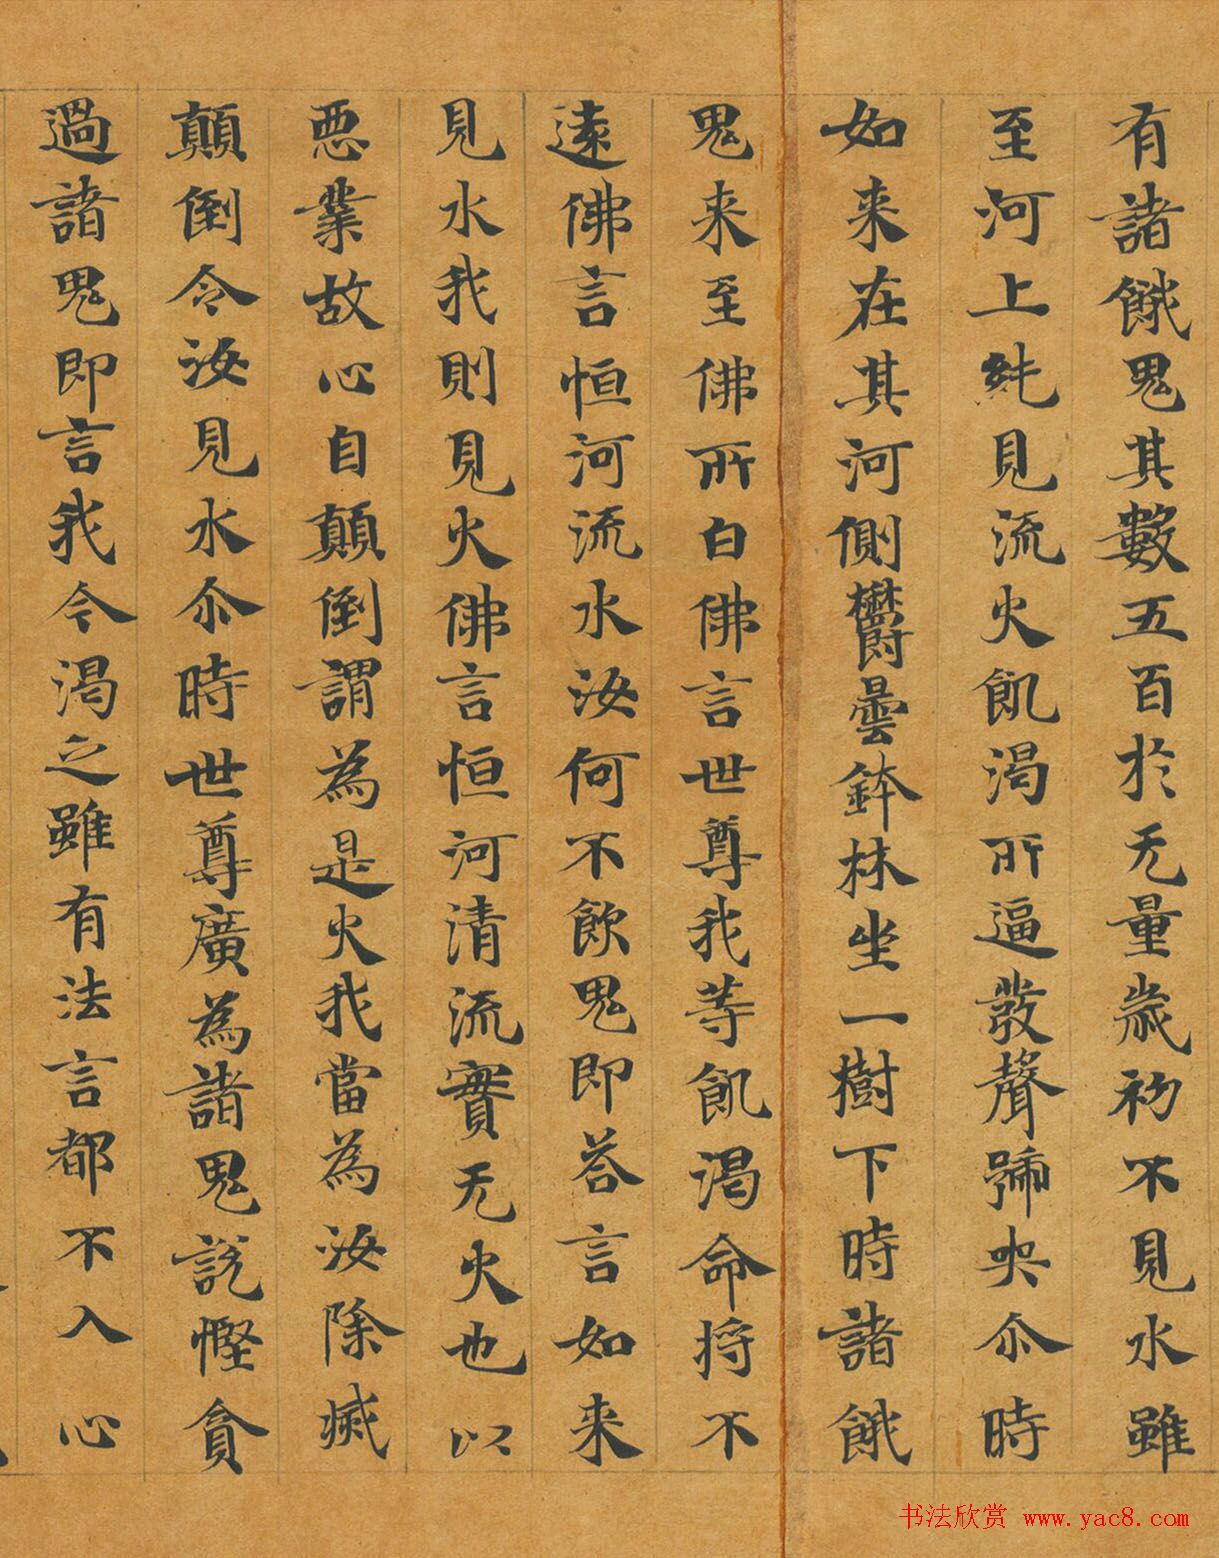 有諸餓鬼其數五百於无量歲初不見水雖
至河上純見流火飢渴所逼發聲號哭尒時
如來在其河側欝曇鉢林坐一樹下時諸餓
鬼来至佛所白佛言世尊我等飢渴命將不
遠佛言恒河流水汝何不飲鬼即荅言如来
見水我則見火佛言恒河清流實无火也以
惡業故心自顛倒謂為是火我當為汝除滅
顛倒令汝見水尒時世尊廣為諸鬼說慳貪
過諸鬼即言我今渴乏雖有法言都不入心
书法欣赏 www.yac8.com